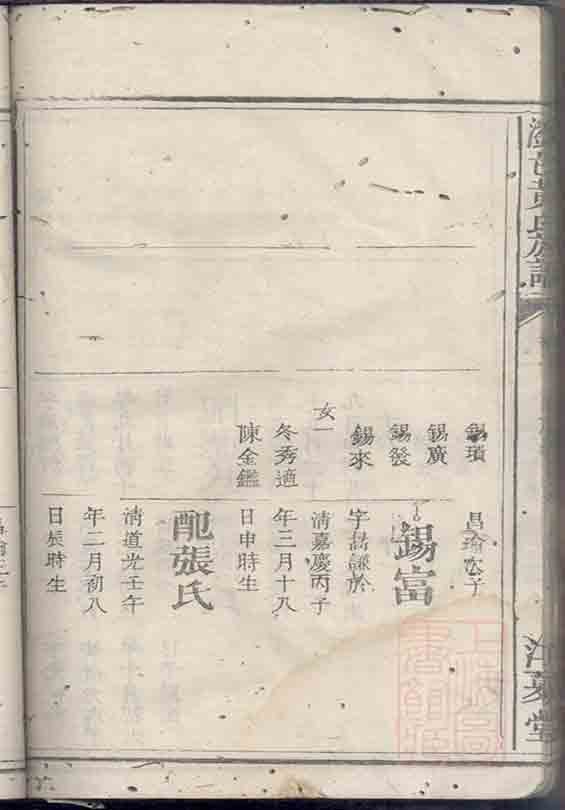 黃氏族譜
江夏堂
錫瓚
錫廣
錫發
錫來
女一
冬秀適
陳金鑑
昌瑜公子
錫富
字
謙於
清嘉慶丙子
年三月十八
日申時生
配張氏
清道光壬午
年二月初八
日辰時生